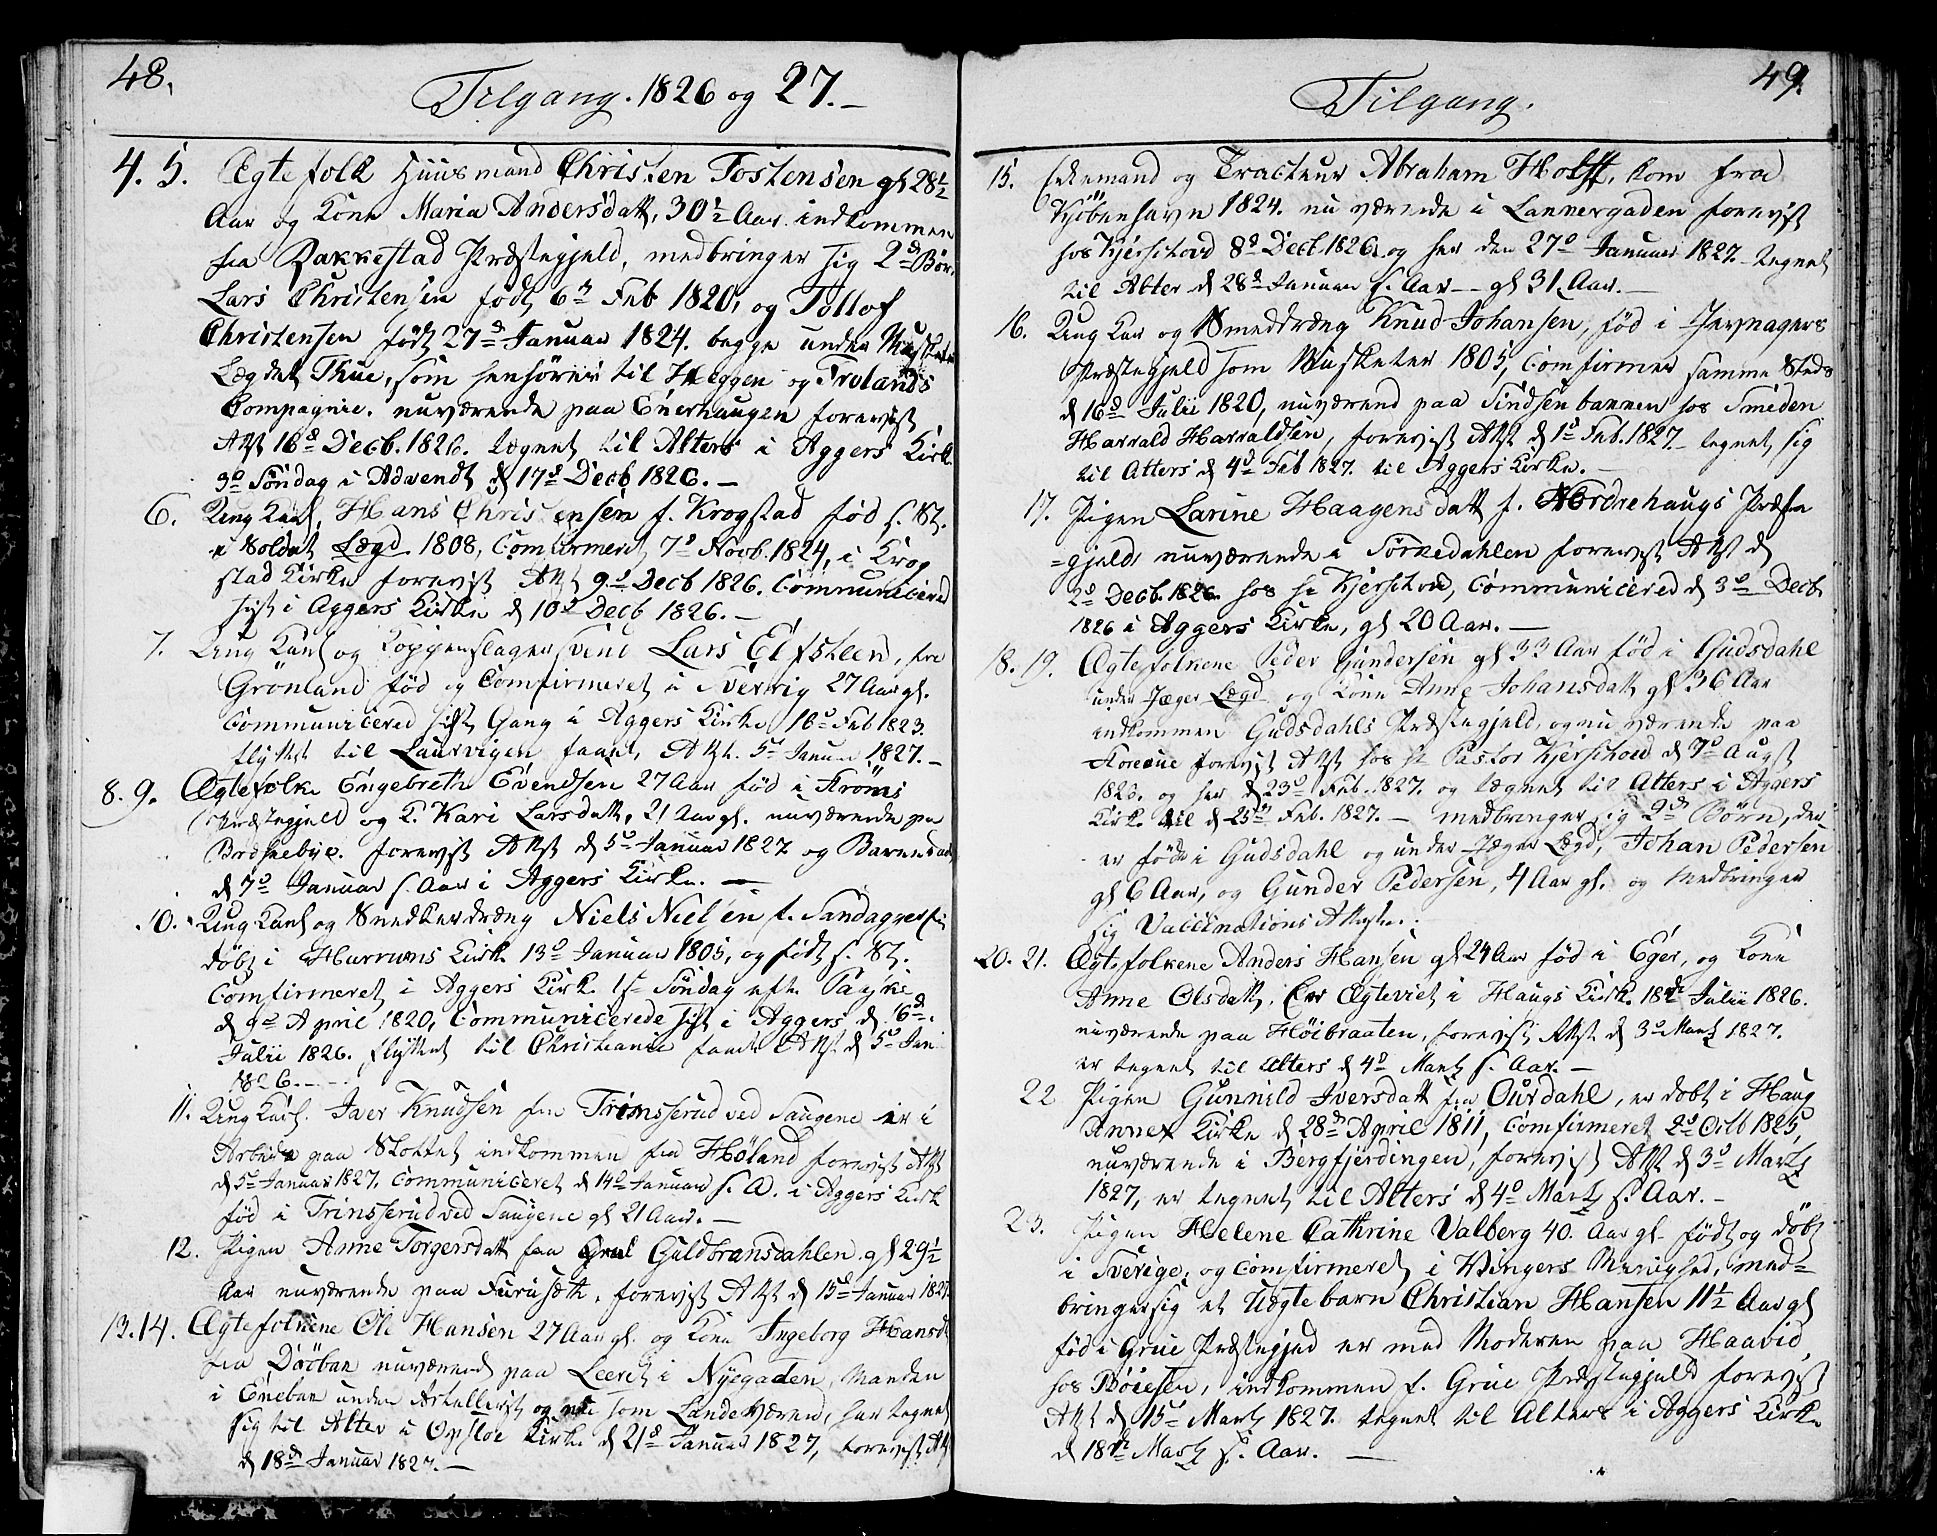 48.
Tilgang. 1826 og 27.
4. 5. Ægtefolk Huusmand Christen Tostensen gl 28½
Aar og Kone Maria Andersdatt, 30½ Aar indkommen
fra Rakkestad Præstegjeld, medbringer sig 2de Børn
Lars Christensen født 6te Feb 1820, og Tollof
Christensen født 27de Januar 1824. begge under
Lægdet Thue, som henhører til Heggen og Frølands
Compagnie. nuværende paa Enerhaugen forevist
Attst 16d Decb. 1826. tegnet til Alters i Aggers Kirke
3d Søndag i Advendt d 17d Decb 1826.
6. Ung Karl, Hans Christensen f. Krogstad fød s. St.
i Soldat Lægd 1808, Comfirmeret 7d Novb. 1824, i Krog
stad Kirke forevist Attst 9d Decb 1826. Communicered
sist i Aggers Kirke d 10d Decb 1826.
7. Ung Karl og Kobberslager Svend Lars Elfsteen, fra
Grønland fød og Comfirmeret i Sverrig 27 Aar gl.
Communicered sidst Gang i Aggers Kirke 16d Feb 1823.
flyttet til Laurvigen, Attst. 5d Januar 1827.
8. 9. Ægtefolk Engebreth Evendsen 27 Aar fød i
Præstegjeld og K. Kari Larsdatt, 21 Aar gl. nuværende paa
forevist Attst d 5d Januar 1827 og
d 7d Januar s. Aar i Aggers Kirke.
10. Ung Karl og Snedkerdreng Niels Nielsen f. Sandagger
døbt i Hurrums Kirke 13d Januar 1805, og født s. St.
Comfirmeret i Aggers Kirke 1st Søndag efter Paaske
d 9d April 1820, Communicerede sist i Aggers d 16d
Julii 1826. flyttet til Christiania Attst d 5d Jan
1826.
11. Ung Karl. Iver Knudsen fra Trinsserud ved Taugene er i
Arbeide paa Slottet indkommen fra Høland forevist Attst
d 5d Januar 1827, Communiceret d 14d Januar s. A. i Aggers Kirke
fød i Trinsserud ved Taugene gl 21 Aar.
12. Pigen Anne Torgersdatt fra Guldbransdahlen gl 29½
Aar nuværende paa Furuseth, forevist Attst d 15d Januar 1827
13. 14. Ægtefolkene Ole Hansen 27 Aar gl. og Kone Ingeborg Hansd
fra nuværend paa Leeret i Nyegaden, Manden
i Eneban under og som Landeværen, har tegnet
sig til Alter i Opsloe Kirke d 21d Januar 1827, forevist Att
d 18de Januar 1827.
49.
Tilgang.
15. Enkemand og Tracteur Abraham Holst, kom fra
Kjøbenhavn 1824. nu værende i forevist
hos Kjerschovd 8d Decb. 1826. og her den 27d Januar 1827. tegnet
til Alter d 28d Januar s. Aar gl 31 Aar.
16. Ung Kar og Smeddreng Knud Johansen, fød i Jevnagers
Præstegjeld som Musketer 1805, Comfirmer samme Steds
d 16d Julii 1820, nuværend paa hos Smeden
Harrald Harraldsen, forevist Attst d 1d Feb. 1827 tegnet sig
til Alters d 4d Feb 1827. til Aggers Kirke.
17. Pigen Larine Haagensdatt f. Nordrehaugs Præste
=gjeld nuværende i Sørkedahlen forevist Attst d
2d Decb. 1826. hos Hr Kjerschou, Communicered d 3d Decb
1826 i Aggers Kirke, gl 20 Aar.
18. 19. Ægtefolkene Peder Gundersen gl 33 Aar fød i Gudsdahl
under Jæger Lægd og Kone Anne Johansdatt gl 36 Aar
indkommen Gudsdahls Præstegjeld, og nu værende paa
forevist Attst hos Hr Pastor Kjerschou d 7d Augst
1826. og her d 23d Feb. 1827. og tegnet til Alters i Aggers
Kirke til d 25de Feb. 1827. medbringer sig 2de Børn, der
er føde i Gudsdahl og under Jæger Lægd, Johan Pedersen
gl 6 Aar, og Gunder Pedersen, 4 Aar gl. og Medbringer
sig Vaccinations Attester.
20. 21. Ægtefolkene Anders Hansen gl 24 Aar fød i Eger, og Kone
Anne Olsdatt. Er Ægteviet i Haugs Kirke 18de Julii 1826.
nuværende paa Høibraaten, forevist Attst d 3d Martz 1827.
er tegnet til Alters d 4d Martz s. Aar.
22 Pigen Gunnild Iversdatt fra Ourdahl, er døbt i Haug
Annex Kirke d 28de April 1811, Comfirmeret 2d Octb 1825,
nuværende i Bergfjerdingen, forevist Attst d 3d Martz
1827, er tegnet til Alters d 4d Martz s. Aar.
23. Pigen Helene Cathrine Valberg 40. Aar gl. født og døbt
i Sverige, og Comfirmeret i Wingers Menighed, med=
bringer sig et Uægte barn Christian Hansen 11½ Aar gl
fød i Grue Præstegjed er med Moderen paa Haavid,
hos Bøiesen, indkommen f. Grue Præstegjeld forevist
Attst d 15d Martz 1827. tegnet til Alters i Aggers Kirke
d 18de Martz s. Aar.